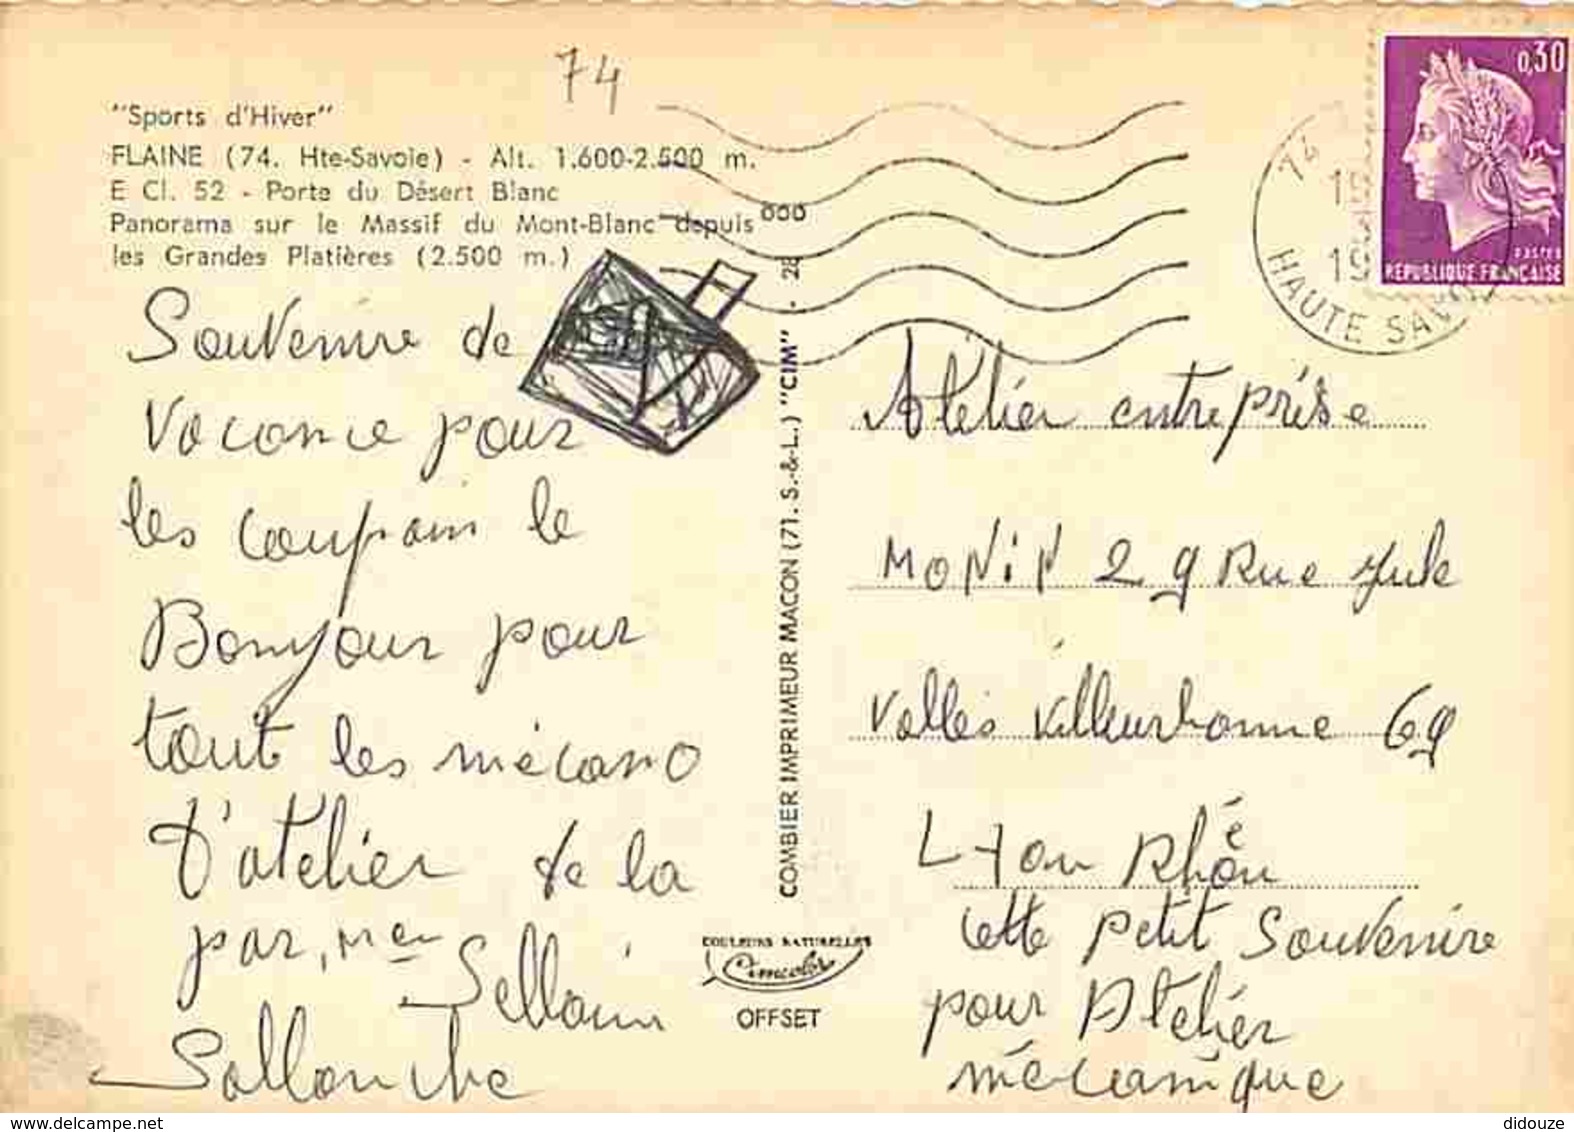 74
"Sports d'Hiver"
FLAINE (74. Hte-Savoie) - Alt. 1.600-2.500 m.
E Cl. 52 - Porte du Désert Blanc
Panorama sur le Massif du Mont-Blanc depuis
les Grandes Platières (2.500 m.)
Souvenire de
Vacance pour
les coupain le
Bonjour pour
tout les mécano
d'atelier de la
par, Mer Sellain
Sallanche
COMBIER IMPRIMEUR MACON (71. S.-&-L.) "CIM" - 28
COULEURS NATURELLES
Cimcolor
OFFSET
0,30
POSTES
REPUBLIQUE FRANÇAISE
74
HAUTE SAVOIE
Atéliér entreprise
MONiN 29 Rue Jule
Vallès Villeurbanne 69
Lyon Rhône
cette petit Souvenire
pour Atéliér
mécanique
didouze